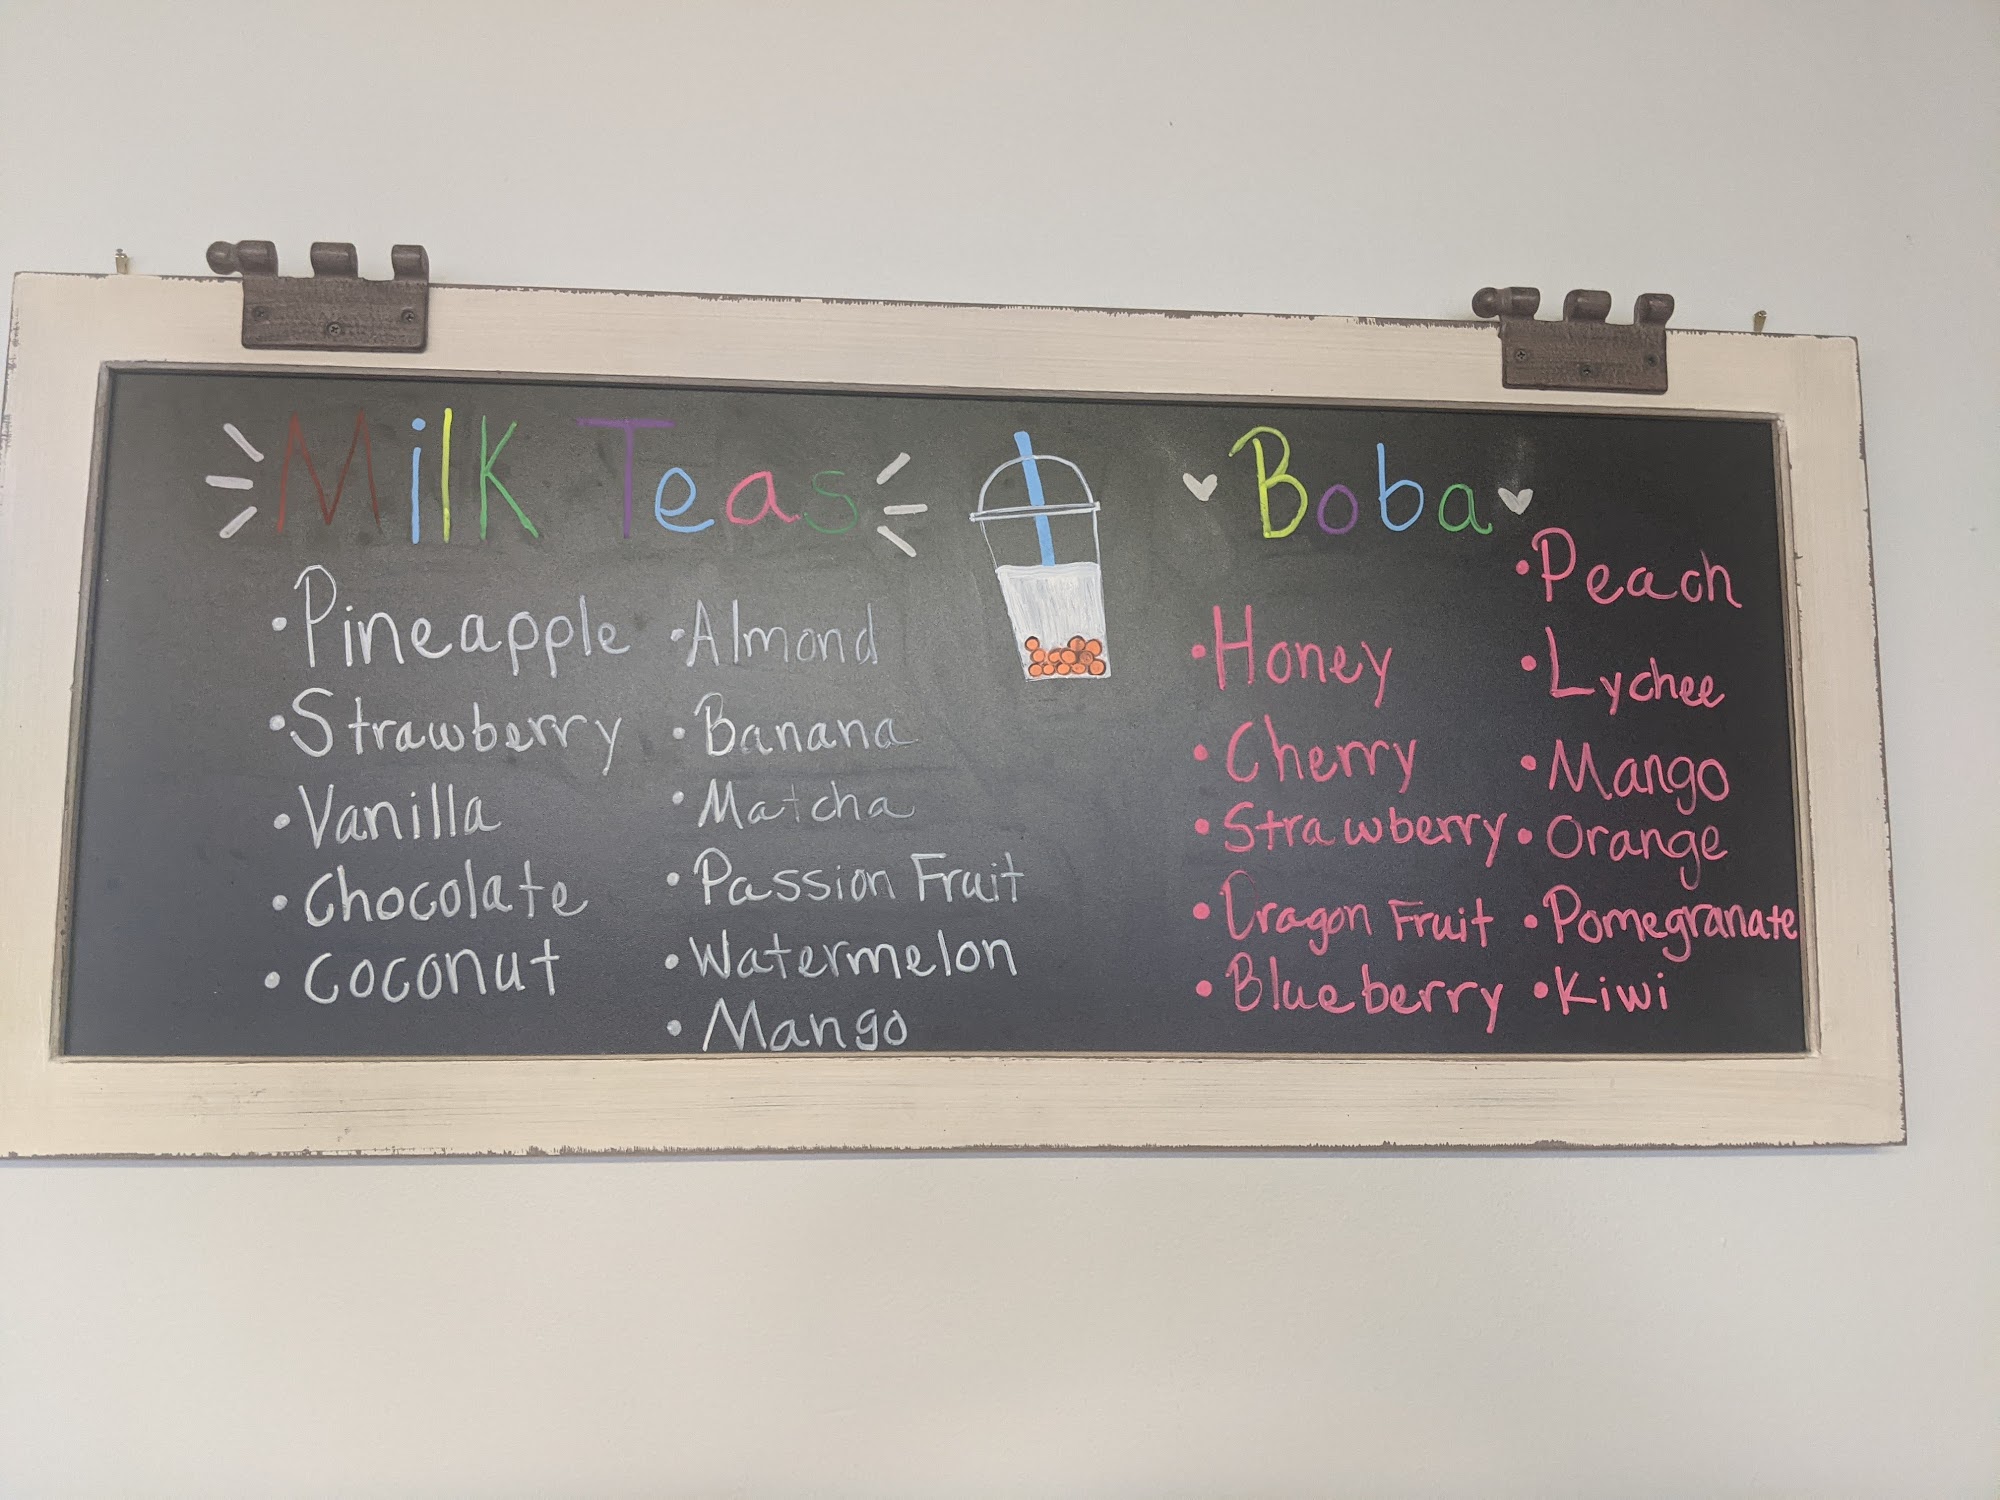 Milk Teas
• Pineapple
• Strawberry
• Vanilla
• Chocolate
• Coconut
• Almond
• Banana
• Matcha
• Passion Fruit
• Watermelon
• Mango
Boba
• Honey
• Cherry
• Strawberry
• Dragon Fruit
• Blueberry
• Peach
• Lychee
• Mango
• Orange
• Pomegranate
• Kiwi